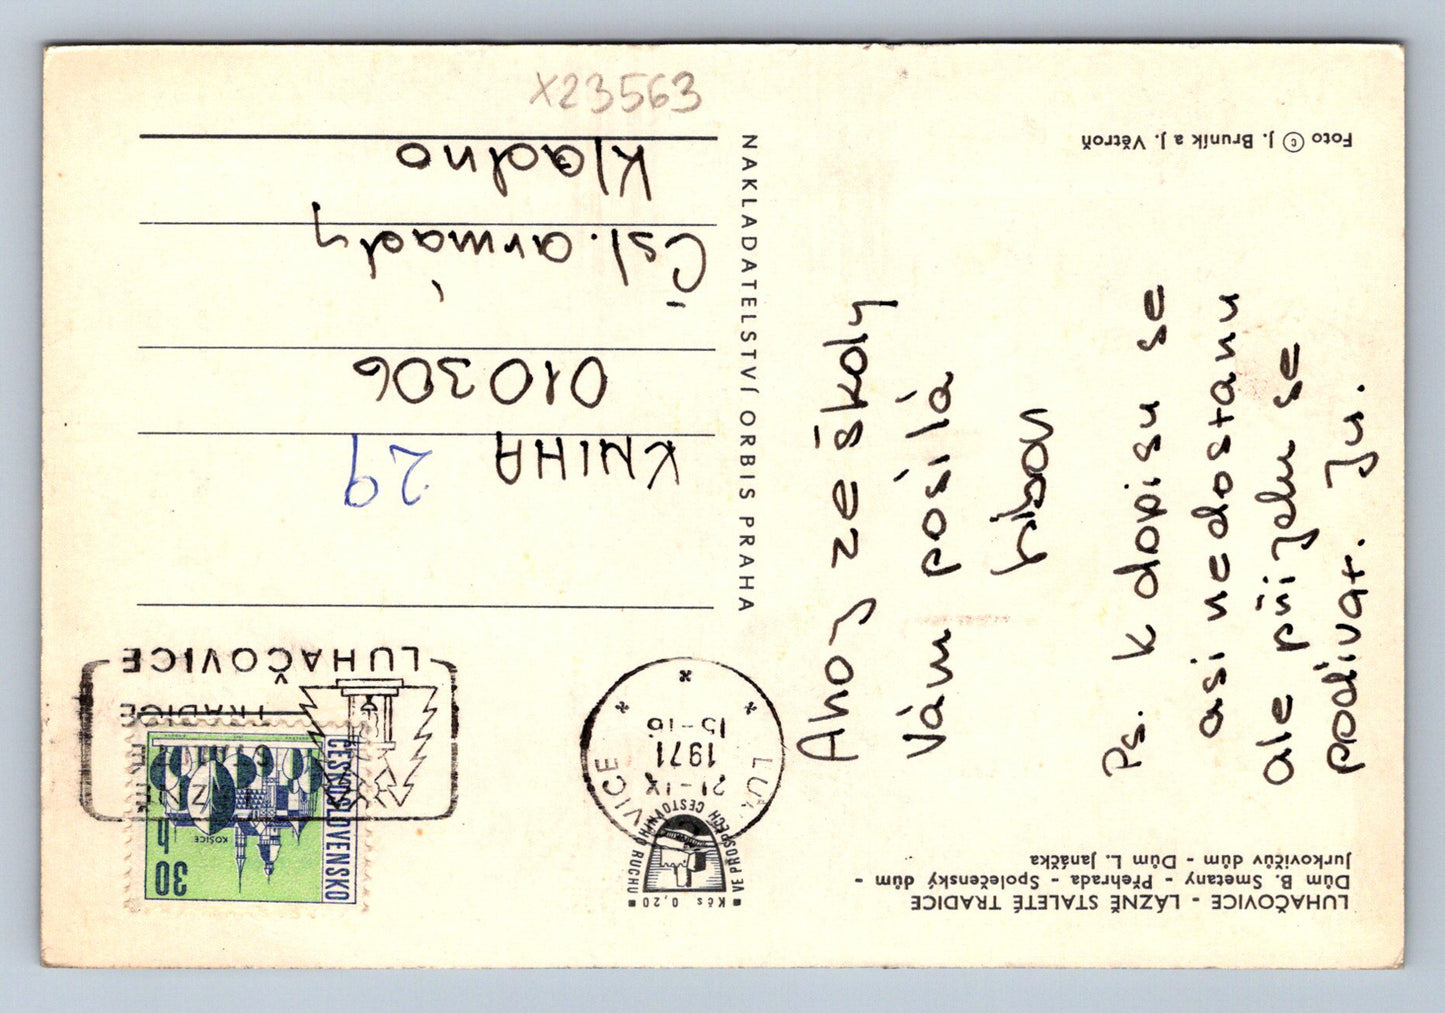 LUHAČOVICE - LÁZNĚ STALETÉ TRADICE
Dům B. Smetany - Přehrada - Společenský dům -
Jurkovičův dům - Dům L. Janáčka
Ahoj ze školy
Vám posílá
Ps. k dopisu se
asi nedostanu
ale přijedu se
podívat. Ju.
Foto © J. Bruník a J. Větroň
NAKLADATELSTVÍ ORBIS PRAHA
Kčs 0,20
VE PROSPĚCH CESTOVNÍHO RUCHU
21-IX
1971
15-16
ČESKOSLOVENSKO
30 h
KOŠICE
LÁZNĚ
STALETÉ
TRADICE
LUHAČOVICE
KNIHA 29
010306
Čsl. armády
Kladno
X23563